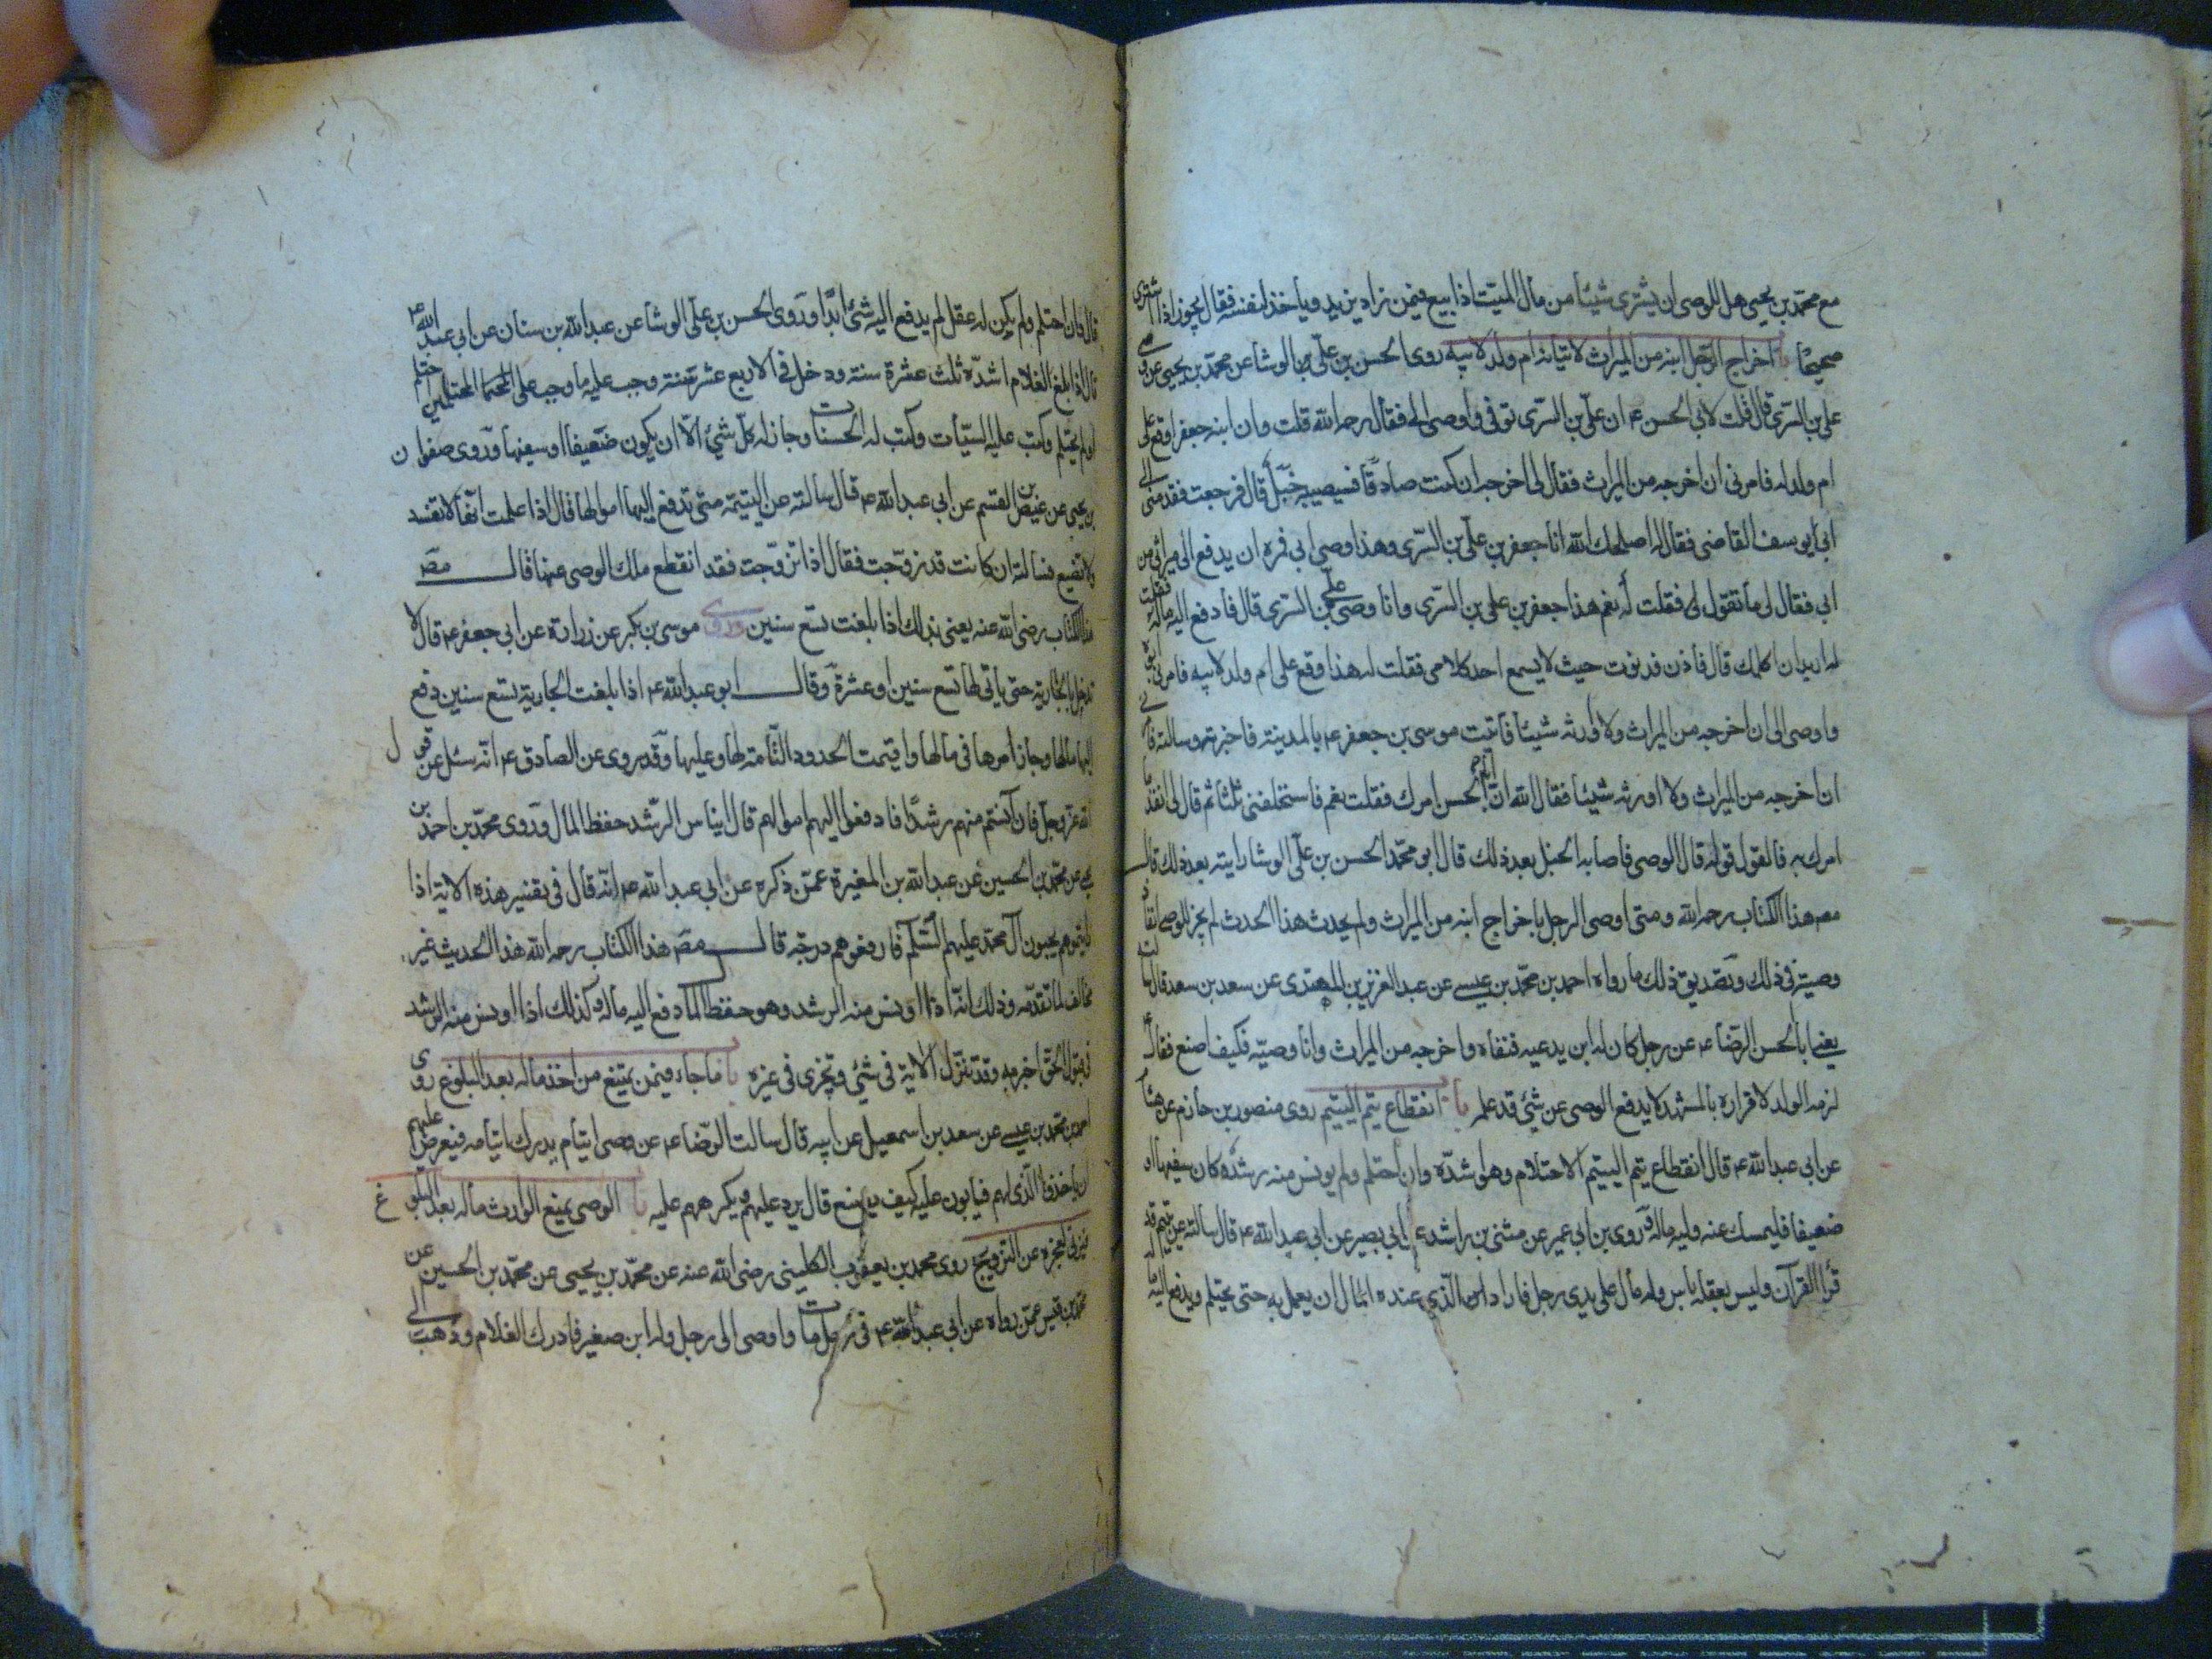 مع محمد بن يحيى هل للوصى ان يشترى شيئا من مال الميت اذا بيع فيمن زاد يزيد وياخذ لنفسه فقال يجوز اذا اشترى
صحيحا باب اخراج الرجل ابنه من الميراث لاتيانه ام ولد لابيه روى الحسن بن على الوشا عن محمد بن يحيى عن وصى
على بن السرى قال قلت لابى الحسن ع ان على بن السرى توفى واوصى الى فقال رحمه الله قلت وان ابنه جعفرا وقع على
ام ولد له فامرنى ان اخرجه من الميراث فقال لى اخرجه ان كنت صادقا فسيصيبه خبل قال فرجعت فقدمنى الى
ابى يوسف القاضى فقال له اصلحك الله انا جعفر بن على بن السرى وهذا وصى ابى فمره ان يدفع الى ميراثى من
ابى فقال لى ما تقول فقلت له نعم هذا جعفر بن على بن السرى وانا وصى على بن السرى قال فادفع اليه ماله فقلت
له اريد ان اكلمك قال فادن فدنوت حيث لا يسمع احد كلامى فقلت له هذا وقع على ام ولد لابيه فامرنى ابوه
واوصى الى ان اخرجه من الميراث ولا اورثه شيئا فاتيت موسى بن جعفر ع بالمدينة فاخبرته وسالته فامرنى
ان اخرجه من الميراث ولا اورثه شيئا فقال الله ان ابا الحسن امرك فقلت نعم فاستحلفنى ثلثا ثم قال لى انفذ ما
امرك به فالقول قوله قال الوصى فاصابه الخبل بعد ذلك قال ابو محمد الحسن بن على الوشا رايته بعد ذلك قال
مص هذا الكتاب رحمه الله ومتى اوصى الرجل باخراج ابنه من الميراث ولم يحدث هذا الحدث لم يجز للوصى انفاذ
وصيته فى ذلك وتصديق ذلك ما رواه احمد بن محمد بن عيسى عن عبد العزيز بن المهتدى عن سعد بن سعد قال سالته
يعنى ابا الحسن الرضا ع عن رجل كان له ابن يدعيه فنفاه واخرجه من الميراث وانا وصيه فكيف اصنع فقال ع
لزمه الولد لاقراره بالمشهد لا يدفع الوصى عن شئ قد علمه باب انقطاع يتم اليتيم روى منصور بن حازم عن هشام
عن ابى عبد الله ع قال انقطاع يتم اليتيم الاحتلام وهو اشده وان احتلم ولم يونس منه رشده كان سفيها او
ضعيفا فليمسك عنه وليه ماله وروى بن ابى عمير عن مثنى بن راشد عن ابى بصير عن ابى عبد الله ع قال سالته عن يتيم قد
قرأ القرآن وليس بعقله باس وله مال على يدى رجل فاراد الذى عنده المال ان يعمل به حتى يحتلم ويدفع اليه ماله
قال فان احتلم ولم يكن له عقل لم يدفع اليه شئ ابدا وروى الحسن بن على الوشا عن عبد الله بن سنان عن ابى عبد الله ع
قال اذا بلغ الغلام اشده ثلث عشرة سنة ودخل فى الاربع عشرة سنة وجب عليه ما وجب على المحتلمين احتلم
او لم يحتلم وكتب عليه السيأت وكتب له الحسنات وجاز له كل شئ الا ان يكون ضعيفا او سفيها وروى صفوان
بن يحيى عن عيص بن القسم عن ابى عبد الله ع قال سالته عن اليتيمة متى تدفع اليها اموالها قال اذا علمت انها لا تفسد
ولا تضيع فسالته ان كانت قد تزوجت فقال اذا تزوجت فقد انقطع ملك الوصى عنها قال مص
هذا الكتاب رضى الله عنه يعنى بذلك اذا بلغت تسع سنين وروى موسى بن بكر عن زرارة عن ابى جعفر ع قال لا
تدخل بالجارية حتى ياتى لها تسع سنين او عشرة وقال ابو عبد الله ع اذا بلغت الجارية تسع سنين دفع
اليها مالها وجاز امرها فى مالها واقيمت الحدود التامة لها وعليها وقد روى عن الصادق ع انه سئل عن قول
الله عز وجل فان آنستم منهم رشدا فادفعوا اليهم اموالهم قال ايناس الرشد حفظ المال وروى محمد بن احمد بن
يحيى عن محمد بن الحسين عن عبد الله بن المغيرة عمن ذكره عن ابى عبد الله ع انه قال فى تفسير هذه الاية اذا
رايتموهم يحبون آل محمد عليهم السلام فارفعوهم درجة قال مص هذا الكتاب رحمه الله هذا الحديث غير
مخالف لما تقدمه وذلك انه اذا اونس منه الرشد وهو حفظ المال دفع اليه ماله وكذلك اذا اونس منه الرشد
فى قبول الحق اخبر به وقد تنزل الاية فى شئ وتجرى فى غيره باب ما جاء فيمن يمتنع من اخذ ماله بعد البلوغ روى
احمد بن محمد بن عيسى عن سعد بن اسمعيل عن ابيه قال سالت الرضا ع عن وصى ايتام يدرك ايتامه فيعرض عليهم
ان ياخذوا الذى لهم فيابون عليه كيف يصنع قال يرد عليهم ويكرههم عليه باب الوصى يمنع الوارث ماله بعد البلوغ
فيزنى لعجزه عن التزويج روى محمد بن يعقوب الكلينى رضى الله عنه عن محمد بن يحيى عن محمد بن الحسين عن
محمد بن قيس عمن رواه عن ابى عبد الله ع فى رجل مات واوصى الى رجل وله ابن صغير فادرك الغلام وذهب الى